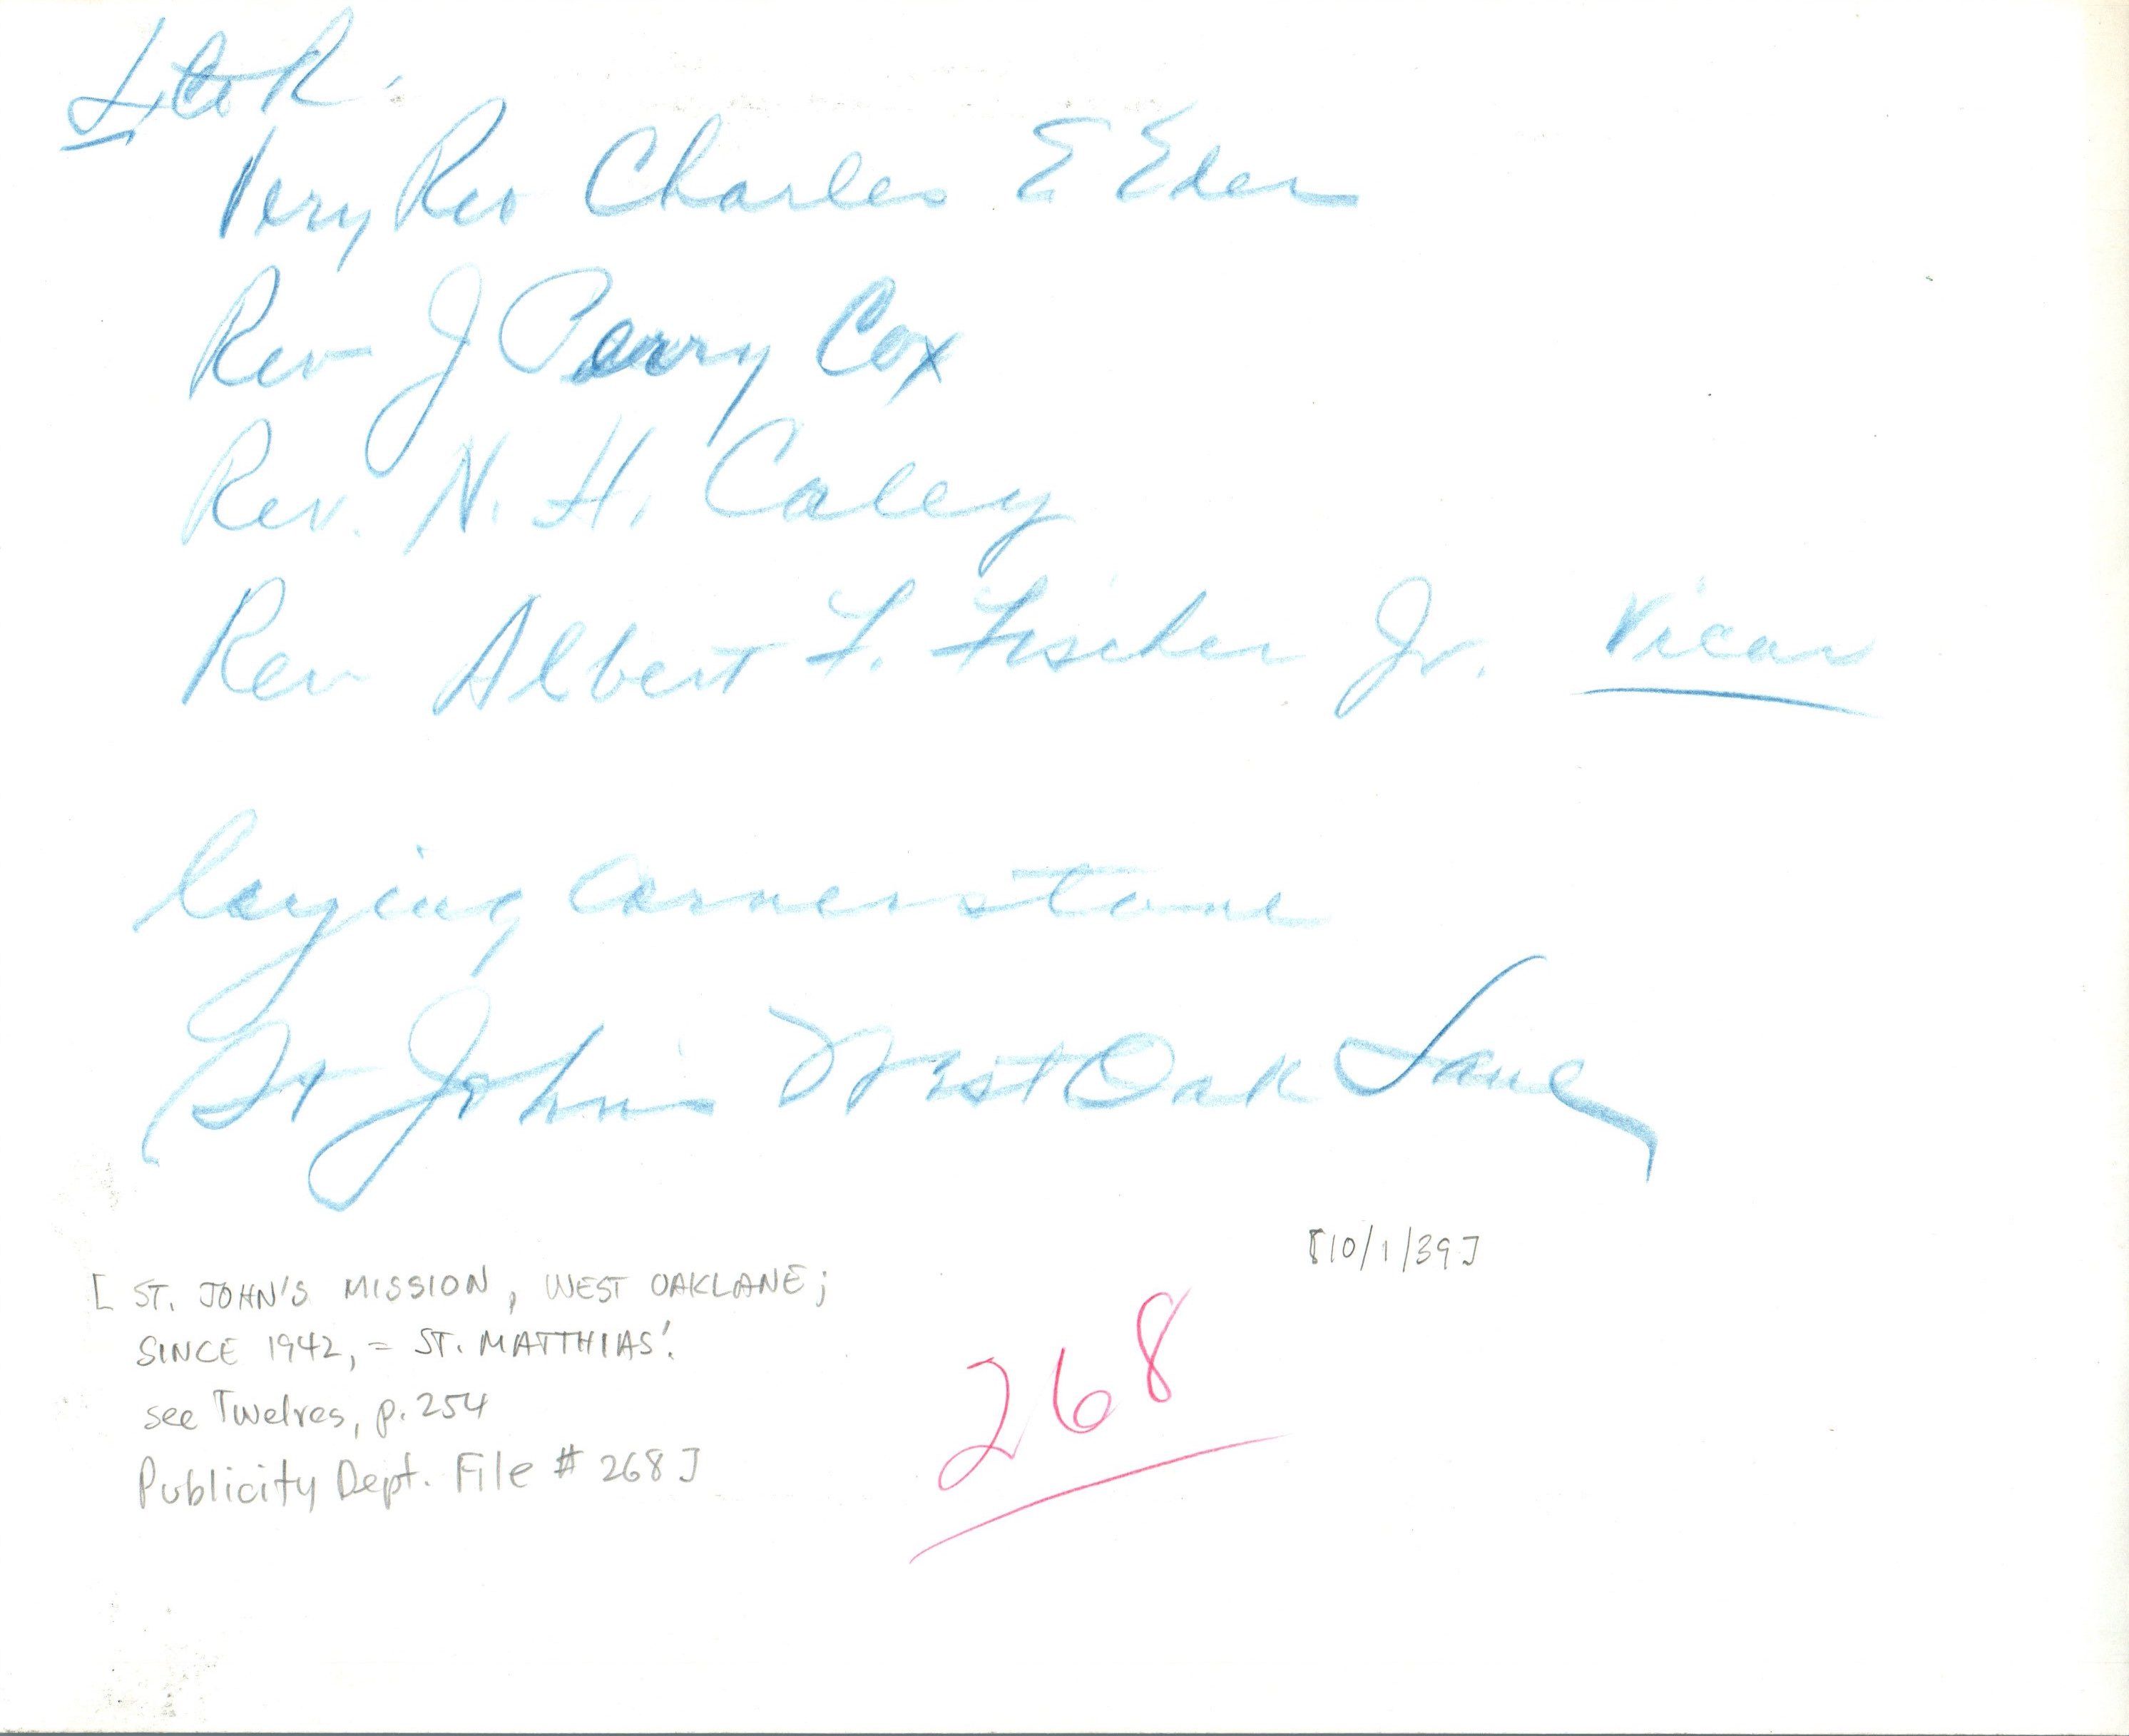 L to R.
Very Rev Charles E Eder
Rev J Perry Cox
Rev. N. H. Caley
Rev Albert F. Fischer Jr. Vicar
laying cornerstone
St John's West Oak Lane
[10/1/39]
[ST. JOHN'S MISSION, WEST OAKLANE;
SINCE 1942, = ST. MATTHIAS'.
see Twelves, p. 254
Publicity Dept. File # 268]
268